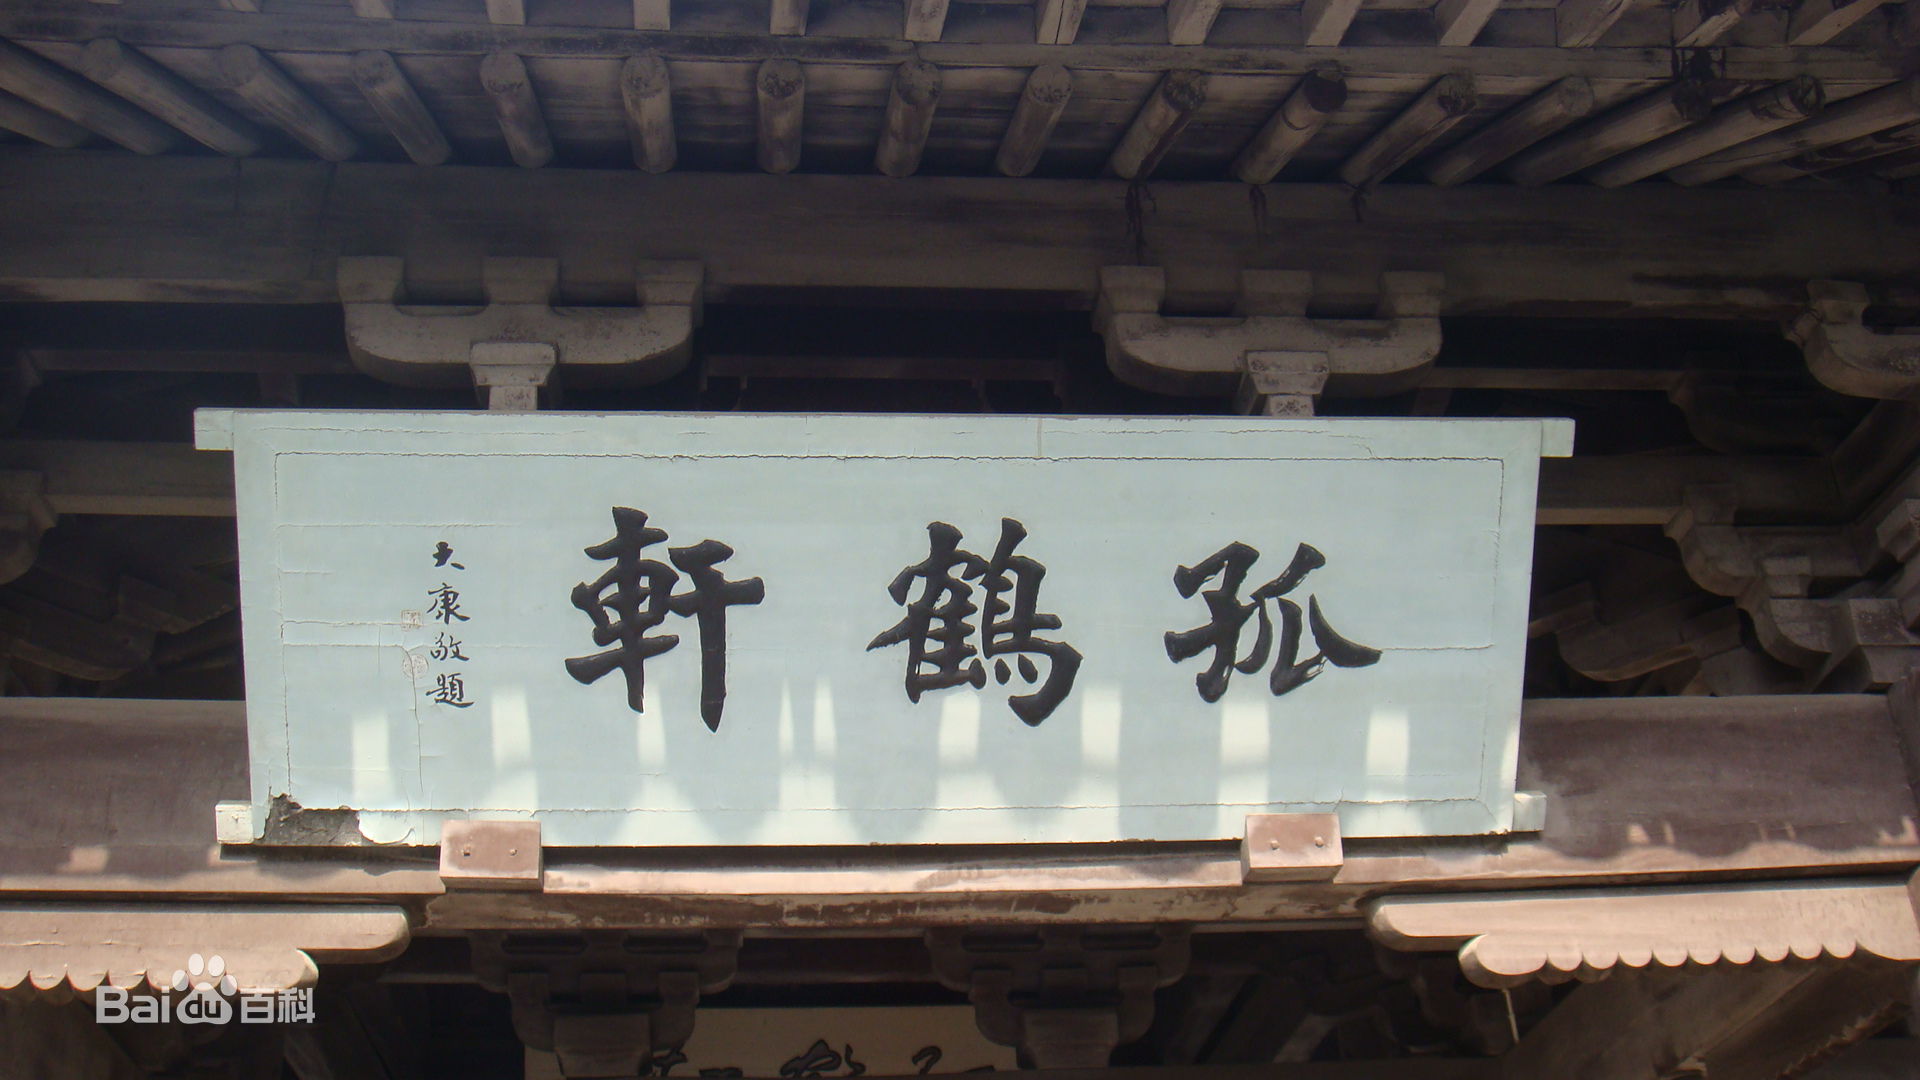 孤鶴軒
大康敬題
Bai du 百科